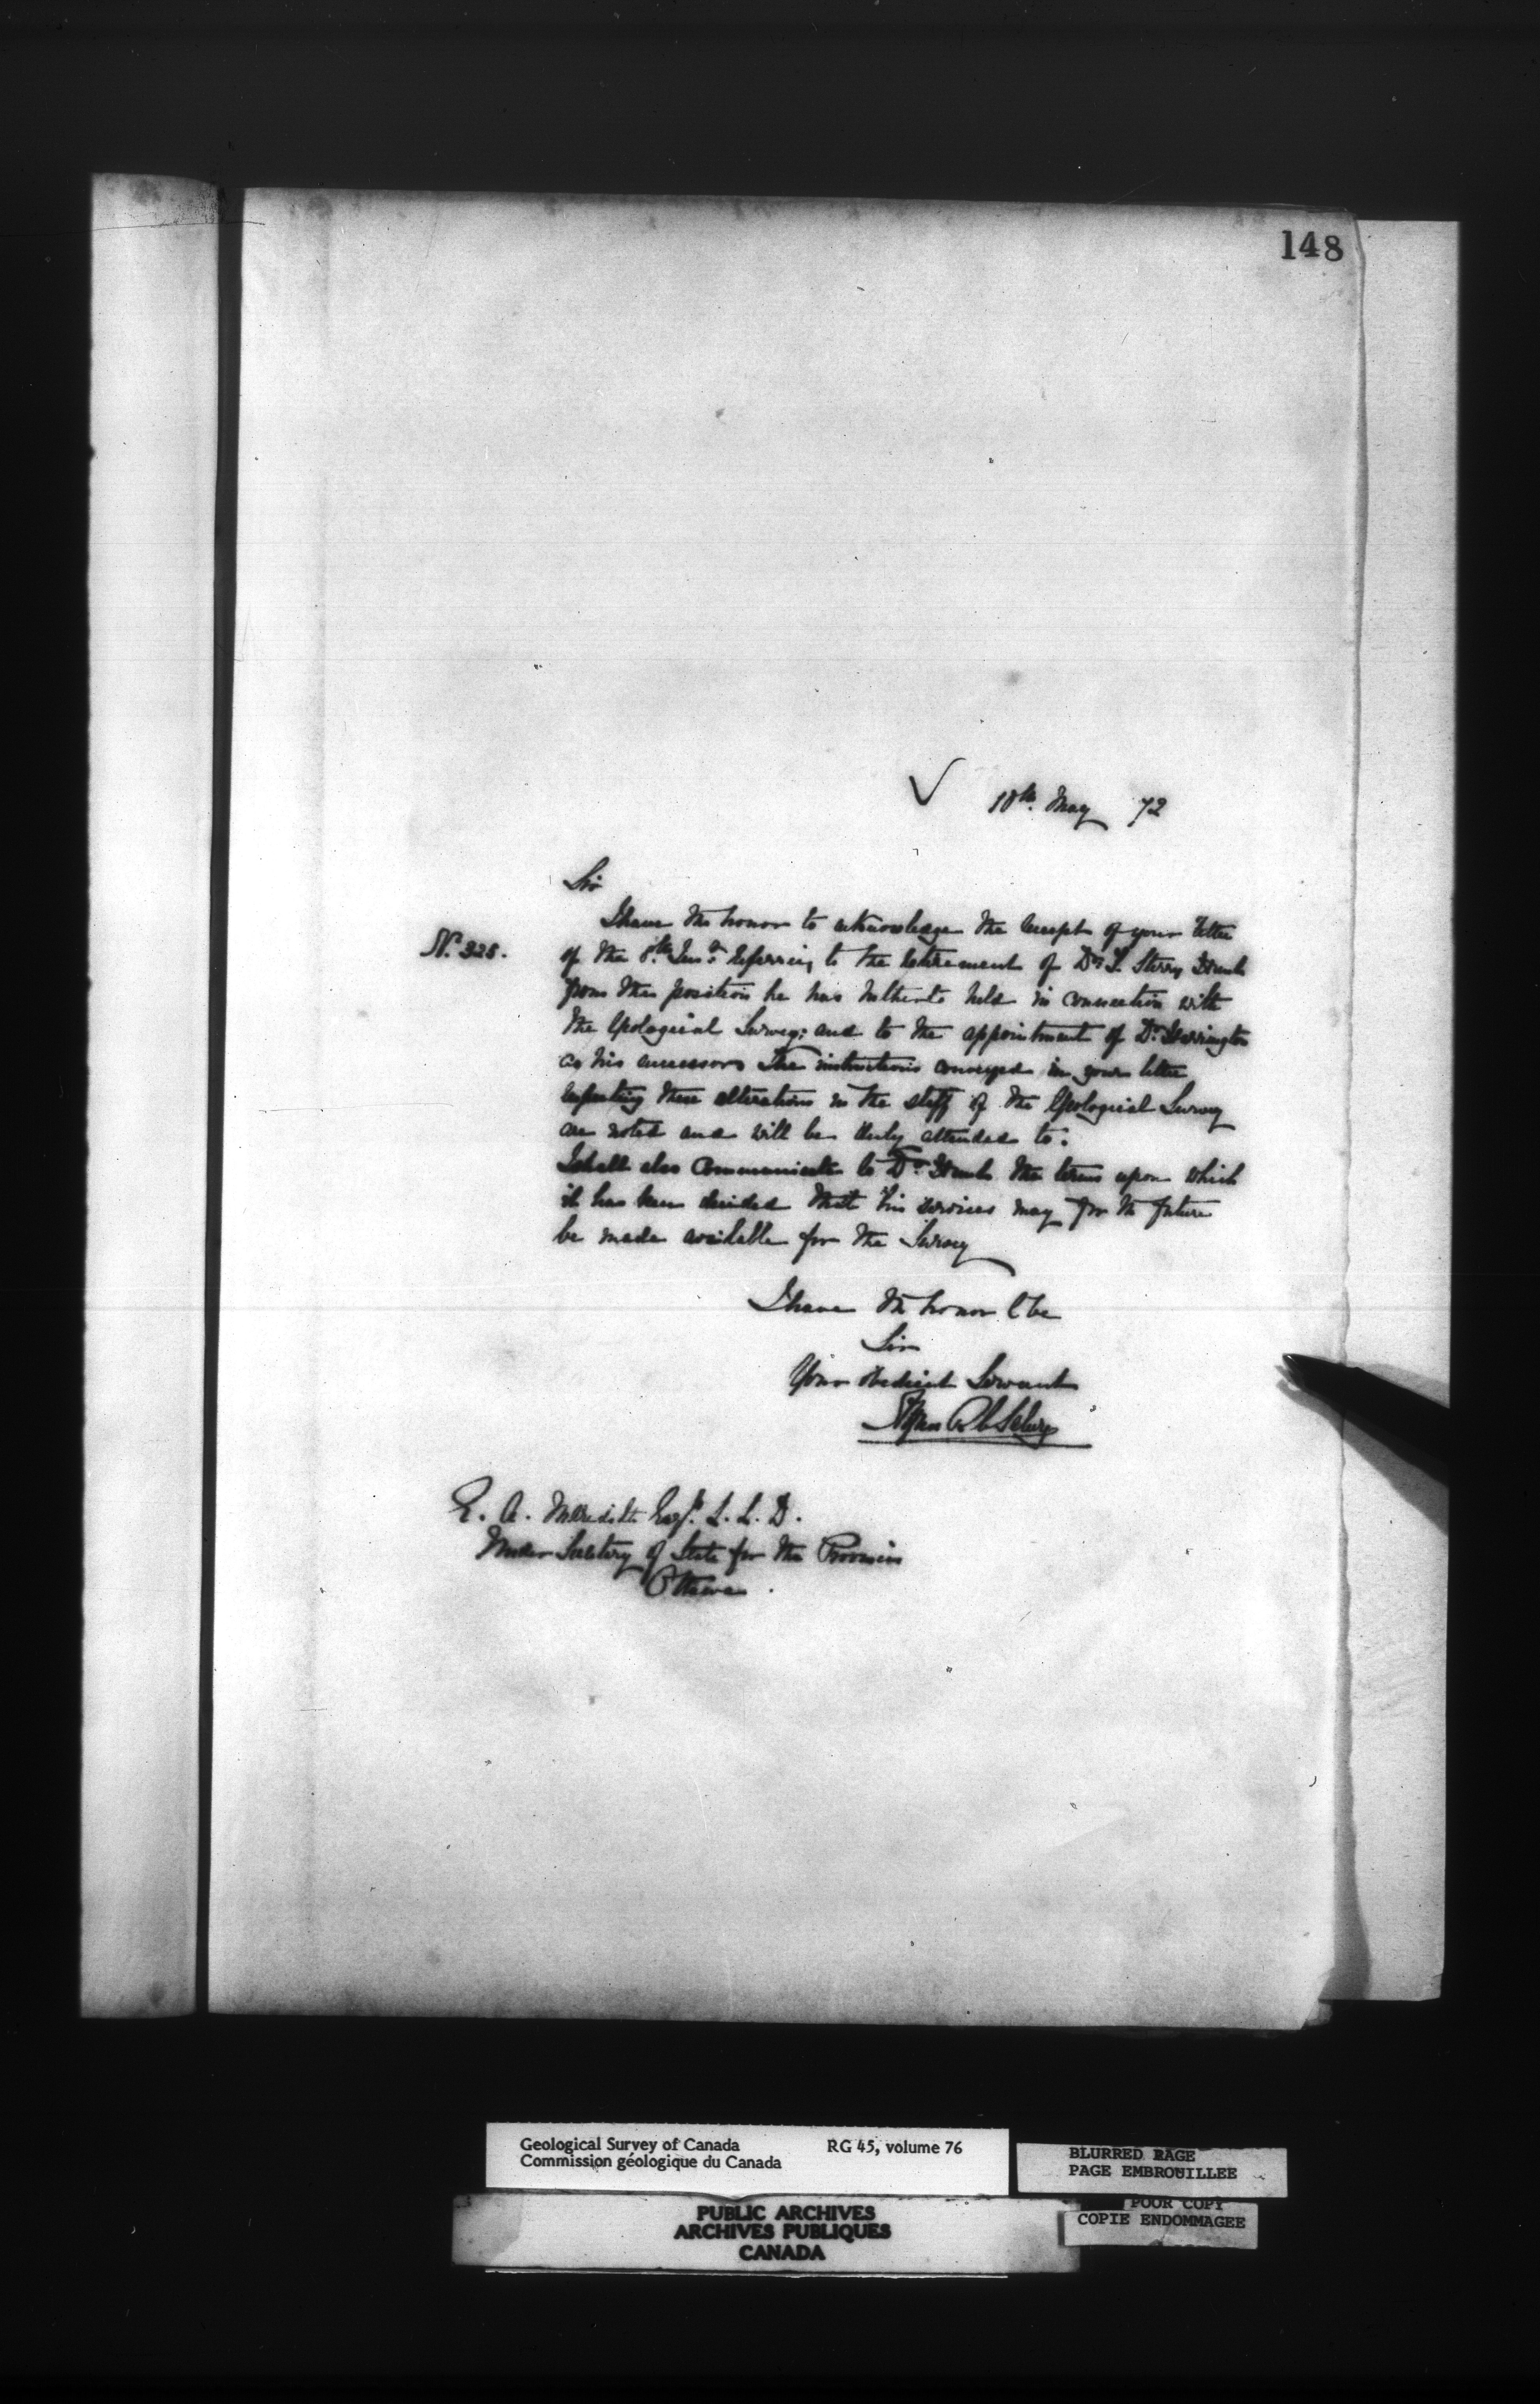 148
10th. May 72
Sir
I have the honor to acknowledge the receipt of your letter
No. 325.
of the 8th. Inst. referring to the retirement of Dr. T. Sterry Hunt
from the position he has hitherto held in connection with
the Geological Survey; and to the appointment of Dr. Harrington
as his successor. The instructions conveyed in your letter
respecting these alterations in the staff of the Geological Survey
are noted and will be duly attended to.
I shall also communicate to Dr. Hunt the terms upon which
it has been decided that his services may for the future
be made available for the Survey
I have the honor to be
Sir
Your obedient Servant
Alfred R C Selwyn
E. A. Meredith Esqr. L. L. D.
Under Secretary of State for the Provinces
Ottawa.
Geological Survey of Canada RG 45, volume 76
Commission géologique du Canada
BLURRED PAGE
PAGE EMBROUILLEE
POOR COPY
COPIE ENDOMMAGEE
PUBLIC ARCHIVES
ARCHIVES PUBLIQUES
CANADA